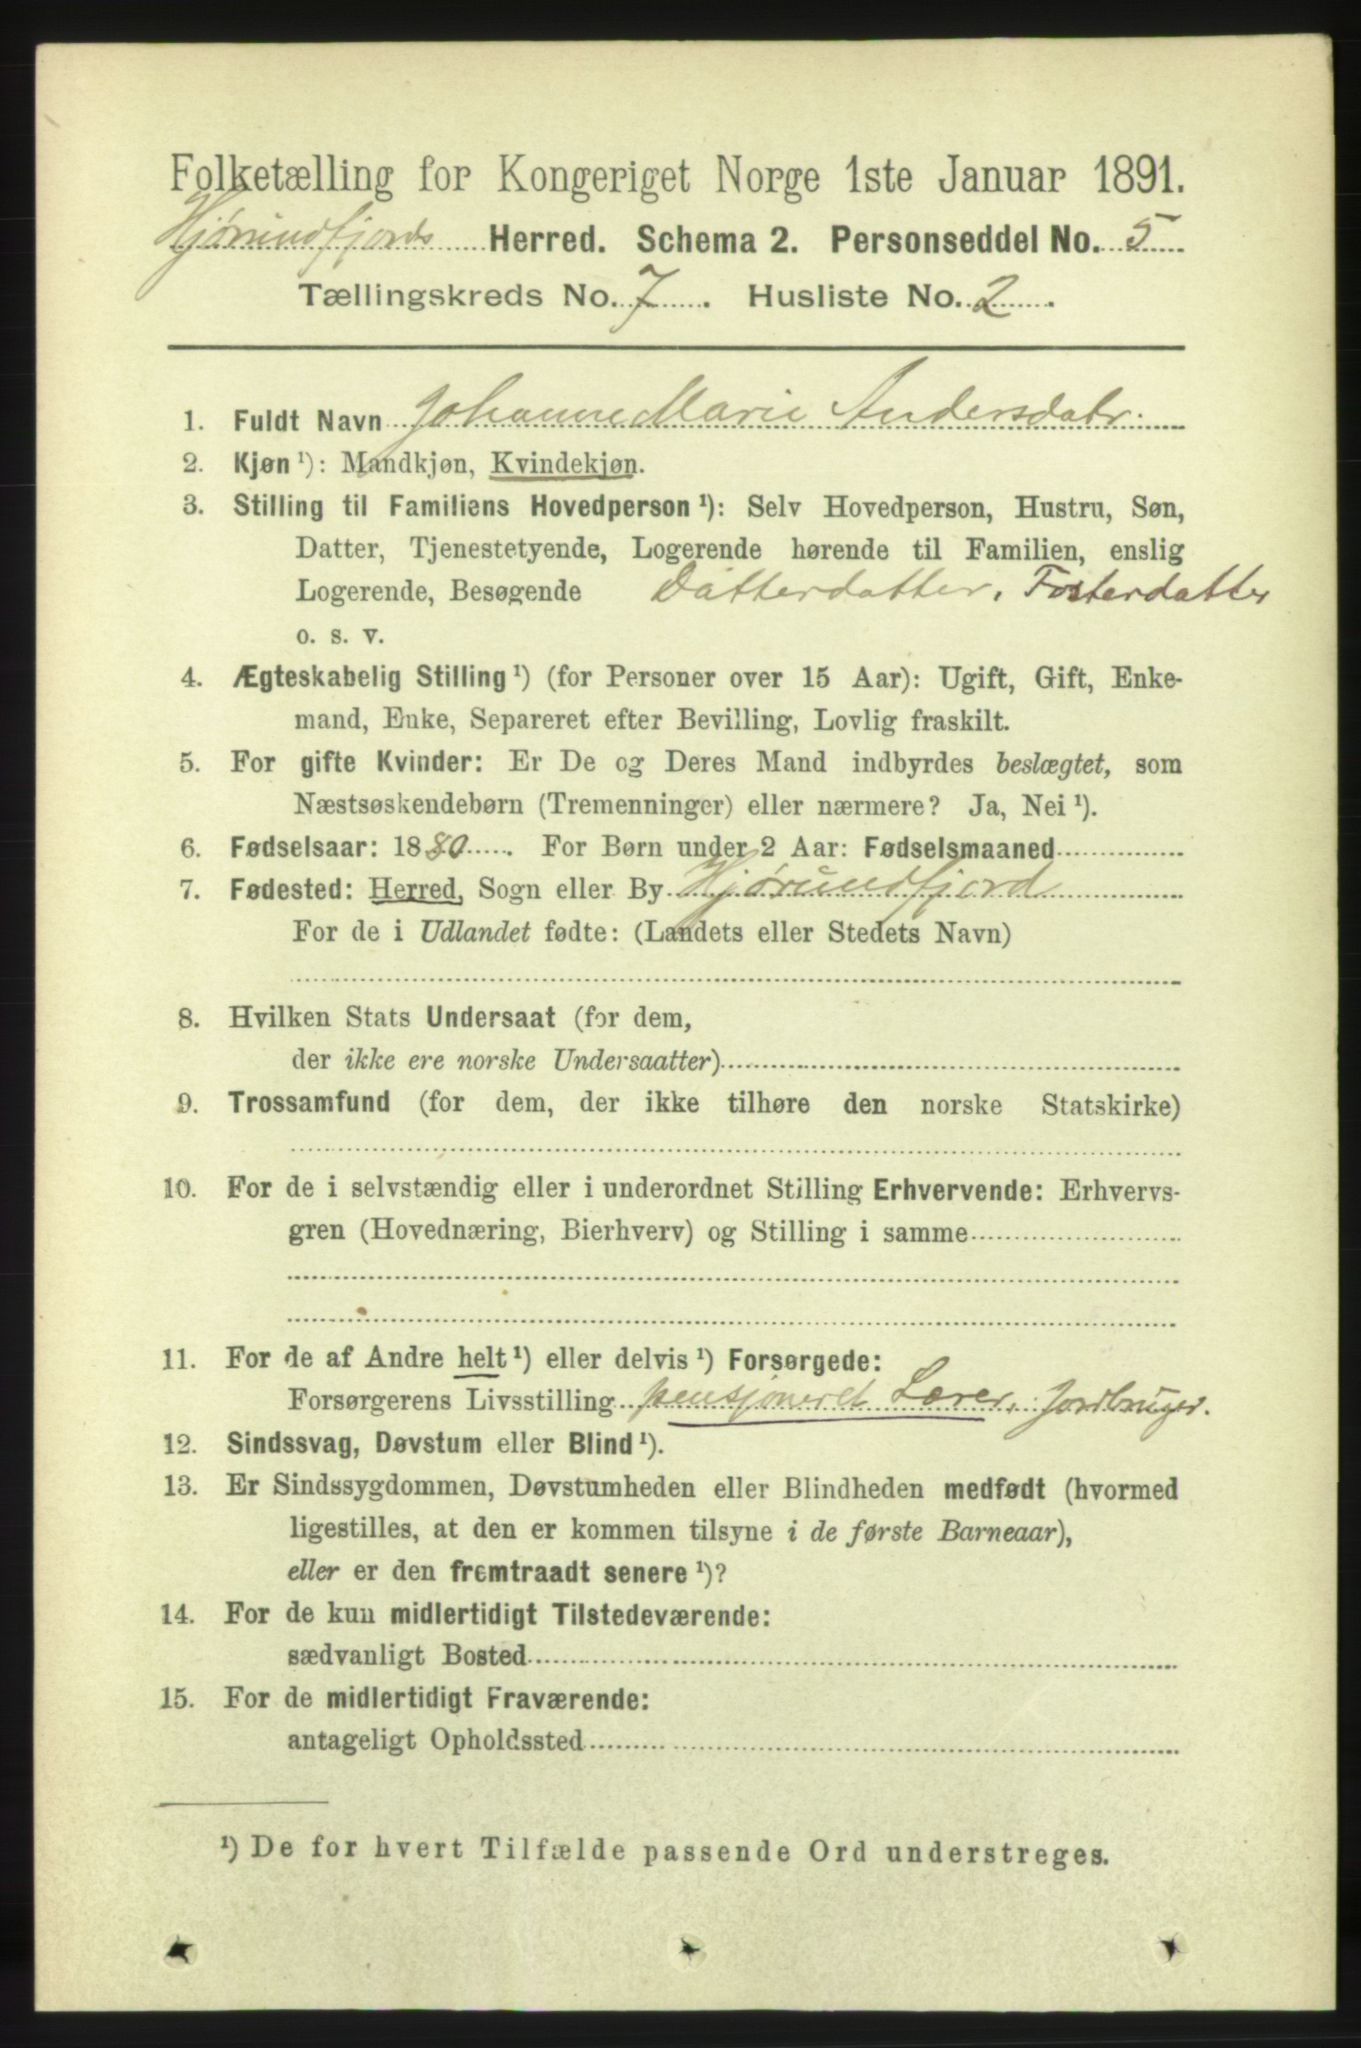 Folketælling for Kongeriget Norge 1ste Januar 1891.
Hjørundfjords Herred. Schema 2. Personseddel No. 5
Tællingskreds No. 7. Husliste No. 2.
1. Fuldt Navn Johanne Marie Andersdatr.
2. Kjøn ¹): Mandkjøn, Kvindekjøn.
3. Stilling til Familiens Hovedperson ¹): Selv Hovedperson, Hustru, Søn,
Datter, Tjenestetyende, Logerende hørende til Familien, enslig
Logerende, Besøgende Datterdatter, Fosterdatter
o. s. v.
4. Ægteskabelig Stilling ¹) (for Personer over 15 Aar): Ugift, Gift, Enke-
mand, Enke, Separeret efter Bevilling, Lovlig fraskilt.
5. For gifte Kvinder: Er De og Deres Mand indbyrdes beslægtet, som
Næstsøskendebørn (Tremenninger) eller nærmere? Ja, Nei ¹).
6. Fødselsaar: 1880. For Børn under 2 Aar: Fødselsmaaned
7. Fødested: Herred, Sogn eller By Hjørundfjord
For de i Udlandet fødte: (Landets eller Stedets Navn)
8. Hvilken Stats Undersaat (for dem,
der ikke ere norske Undersaatter)
9. Trossamfund (for dem, der ikke tilhøre den norske Statskirke)
10. For de i selvstændig eller i underordnet Stilling Erhvervende: Erhvervs-
gren (Hovednæring, Bierhverv) og Stilling i samme
11. For de af Andre helt ¹) eller delvis ¹) Forsørgede:
Forsørgerens Livsstilling pensjoneret Lærer, Jordbruger.
12. Sindssvag, Døvstum eller Blind ¹).
13. Er Sindssygdommen, Døvstumheden eller Blindheden medfødt (hvormed
ligestilles, at den er kommen tilsyne i de første Barneaar),
eller er den fremtraadt senere ¹)?
14. For de kun midlertidigt Tilstedeværende:
sædvanligt Bosted
15. For de midlertidigt Fraværende:
antageligt Opholdssted
¹) De for hvert Tilfælde passende Ord understreges.